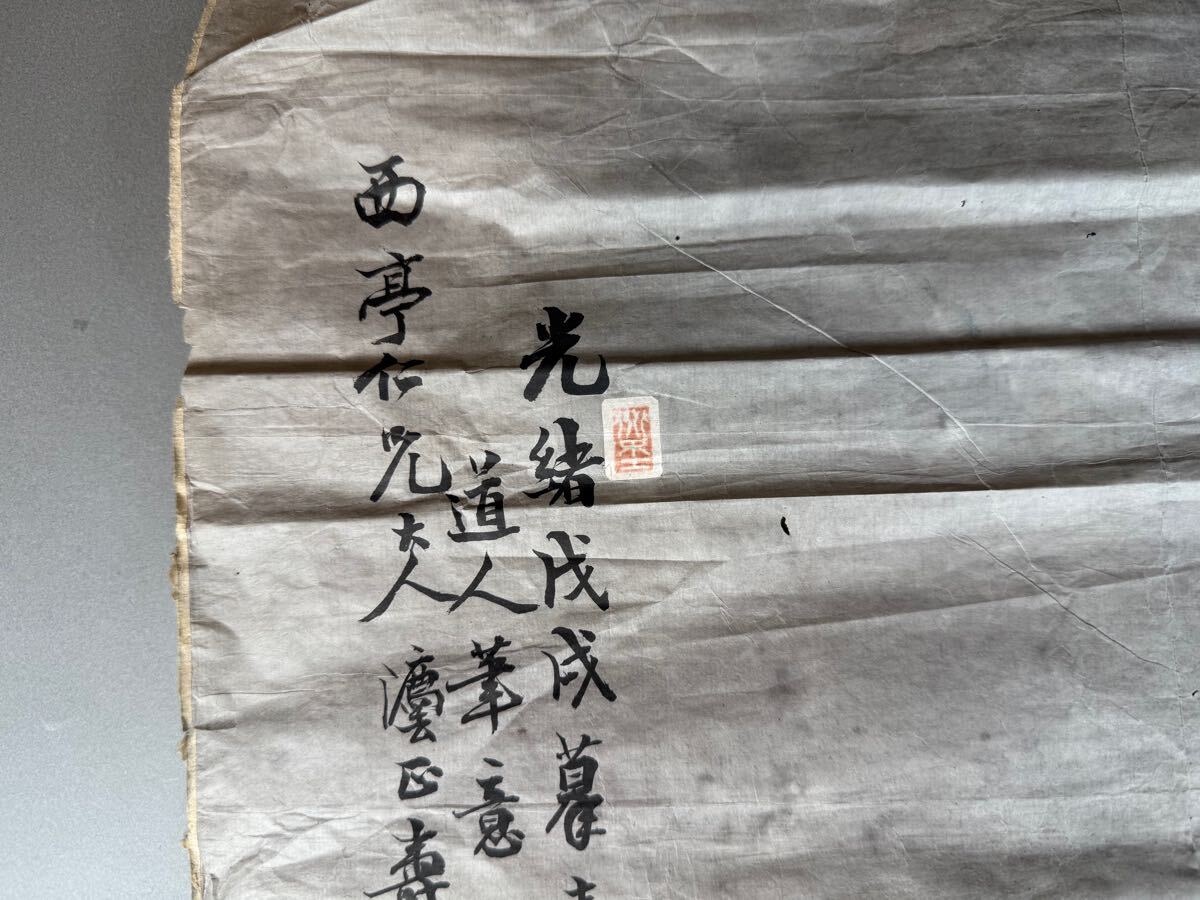 光緒戊戌摹
道人筆意
西亭仁兄大人灋正壽